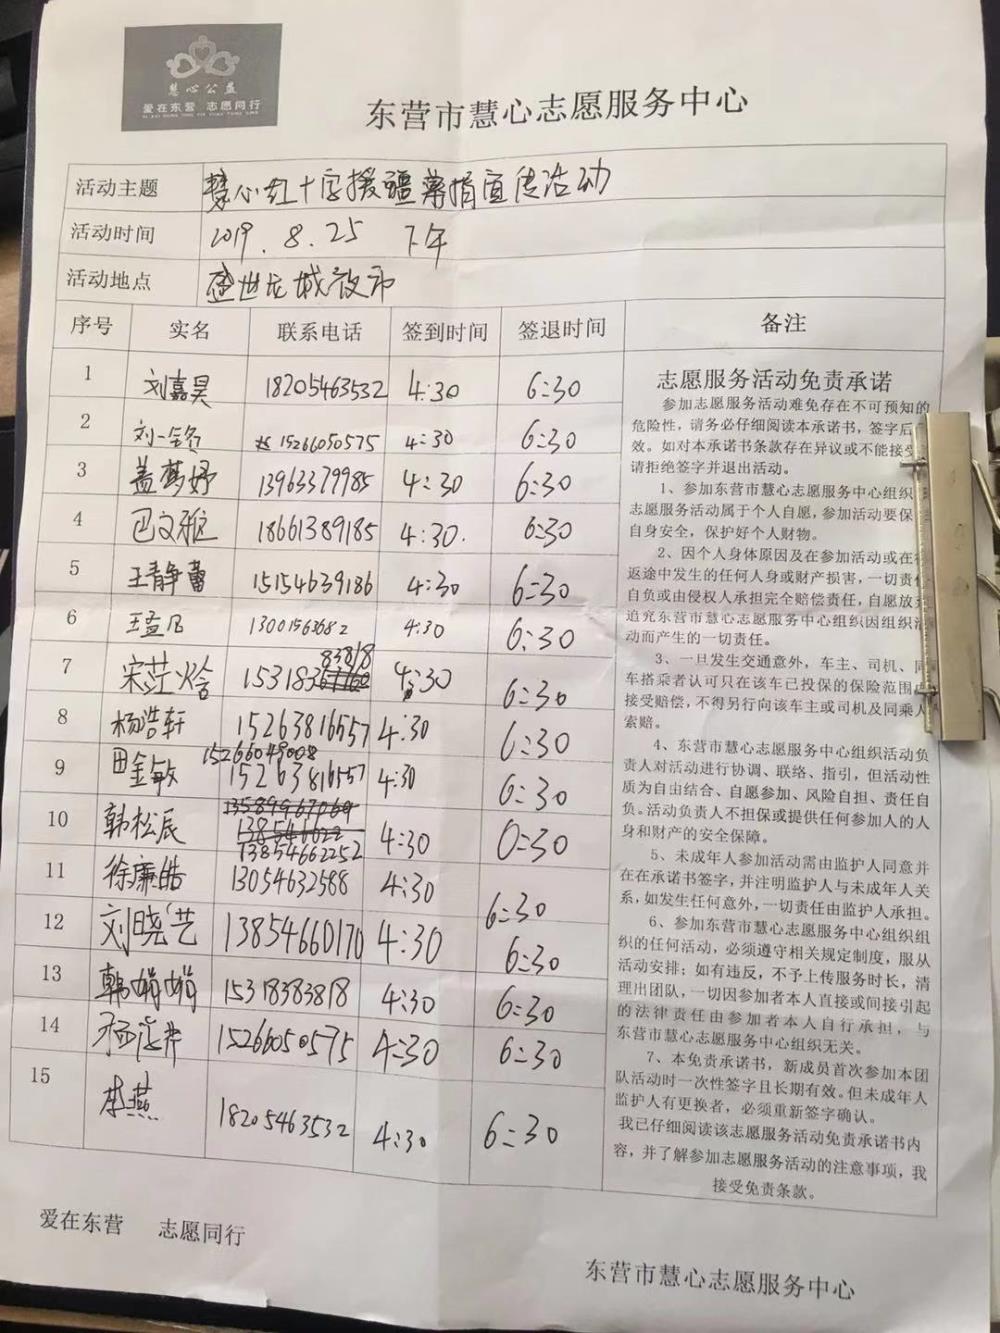 慧心公益
爱在东营 志愿同行
东营市慧心志愿服务中心
活动主题 慧心红十字援疆募捐宣传活动
活动时间 2019.8.25 下午
活动地点 盛世龙城夜市
序号 实名 联系电话 签到时间 签退时间 备注
1 刘嘉昊 18205463532 4:30 6:30
2 刘一铭 15266050575 4:30 6:30
3 盖梦妤 13963379985 4:30 6:30
4 巴文雅 18661389185 4:30. 6:30
5 王静蕾 15154639186 4:30 6:30
6 王孟凡 13001563682 4:30 6:30
83818
7 宋 153183 4:30 6:30
8 杨浩轩 15263816557 4:30 6:30
15266049008
9 田金敏 15263816557 4:30 6:30
13589967069
10 韩松辰 138546622 4:30 0:30
13854662252
11 徐廉皓 13054632588 4:30 6:30
12 刘晓艺 13854660170 4:30 6:30
13 韩娟娟 15318383818 4:30 6:30
14 15266050575 4:30 6:30
15 李燕 18205463532 4:30 6:30
志愿服务活动免责承诺
参加志愿服务活动难免存在不可预知的
危险性，请务必仔细阅读本承诺书，签字后
效。如对本承诺书条款存在异议或不能接受
请拒绝签字并退出活动。
1、参加东营市慧心志愿服务中心组织
志愿服务活动属于个人自愿，参加活动要保
自身安全，保护好个人财物。
2、因个人身体原因及在参加活动或在往
返途中发生的任何人身或财产损害，一切责任
自负或由侵权人承担完全赔偿责任，自愿放
追究东营市慧心志愿服务中心组织因组织活
动而产生的一切责任。
3、一旦发生交通意外，车主、司机、同
车搭乘者认可只在该车已投保的保险范围
接受赔偿，不得另行向该车主或司机及同乘人
索赔。
4、东营市慧心志愿服务中心组织活动负
责人对活动进行协调、联络、指引，但活动性
质为自由结合、自愿参加、风险自担、责任自
负。活动负责人不担保或提供任何参加人的人
身和财产的安全保障。
5、未成年人参加活动需由监护人同意并
在在承诺书签字，并注明监护人与未成年人关
系，如发生任何意外，一切责任由监护人承担。
6、参加东营市慧心志愿服务中心组织组
织的任何活动，必须遵守相关规定制度，服从
活动安排；如有违反，不予上传服务时长，清
理出团队，一切因参加者本人直接或间接引起
的法律责任由参加者本人自行承担，与
东营市慧心志愿服务中心组织无关。
7、本免责承诺书，新成员首次参加本团
队活动时一次性签字且长期有效。但未成年人
监护人有更换者，必须重新签字确认。
我已仔细阅读该志愿服务活动免责承诺书内
容，并了解参加志愿服务活动的注意事项，我
接受免责条款。
爱在东营 志愿同行
东营市慧心志愿服务中心